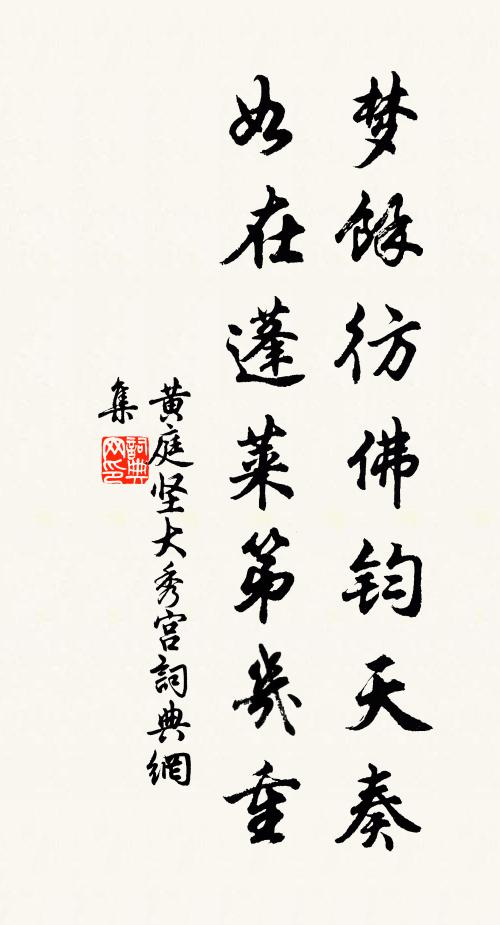 梦餘彷佛钧天奏
如在蓬莱第幾重
黄庭坚大秀宫詞典網
集
詞典
网印